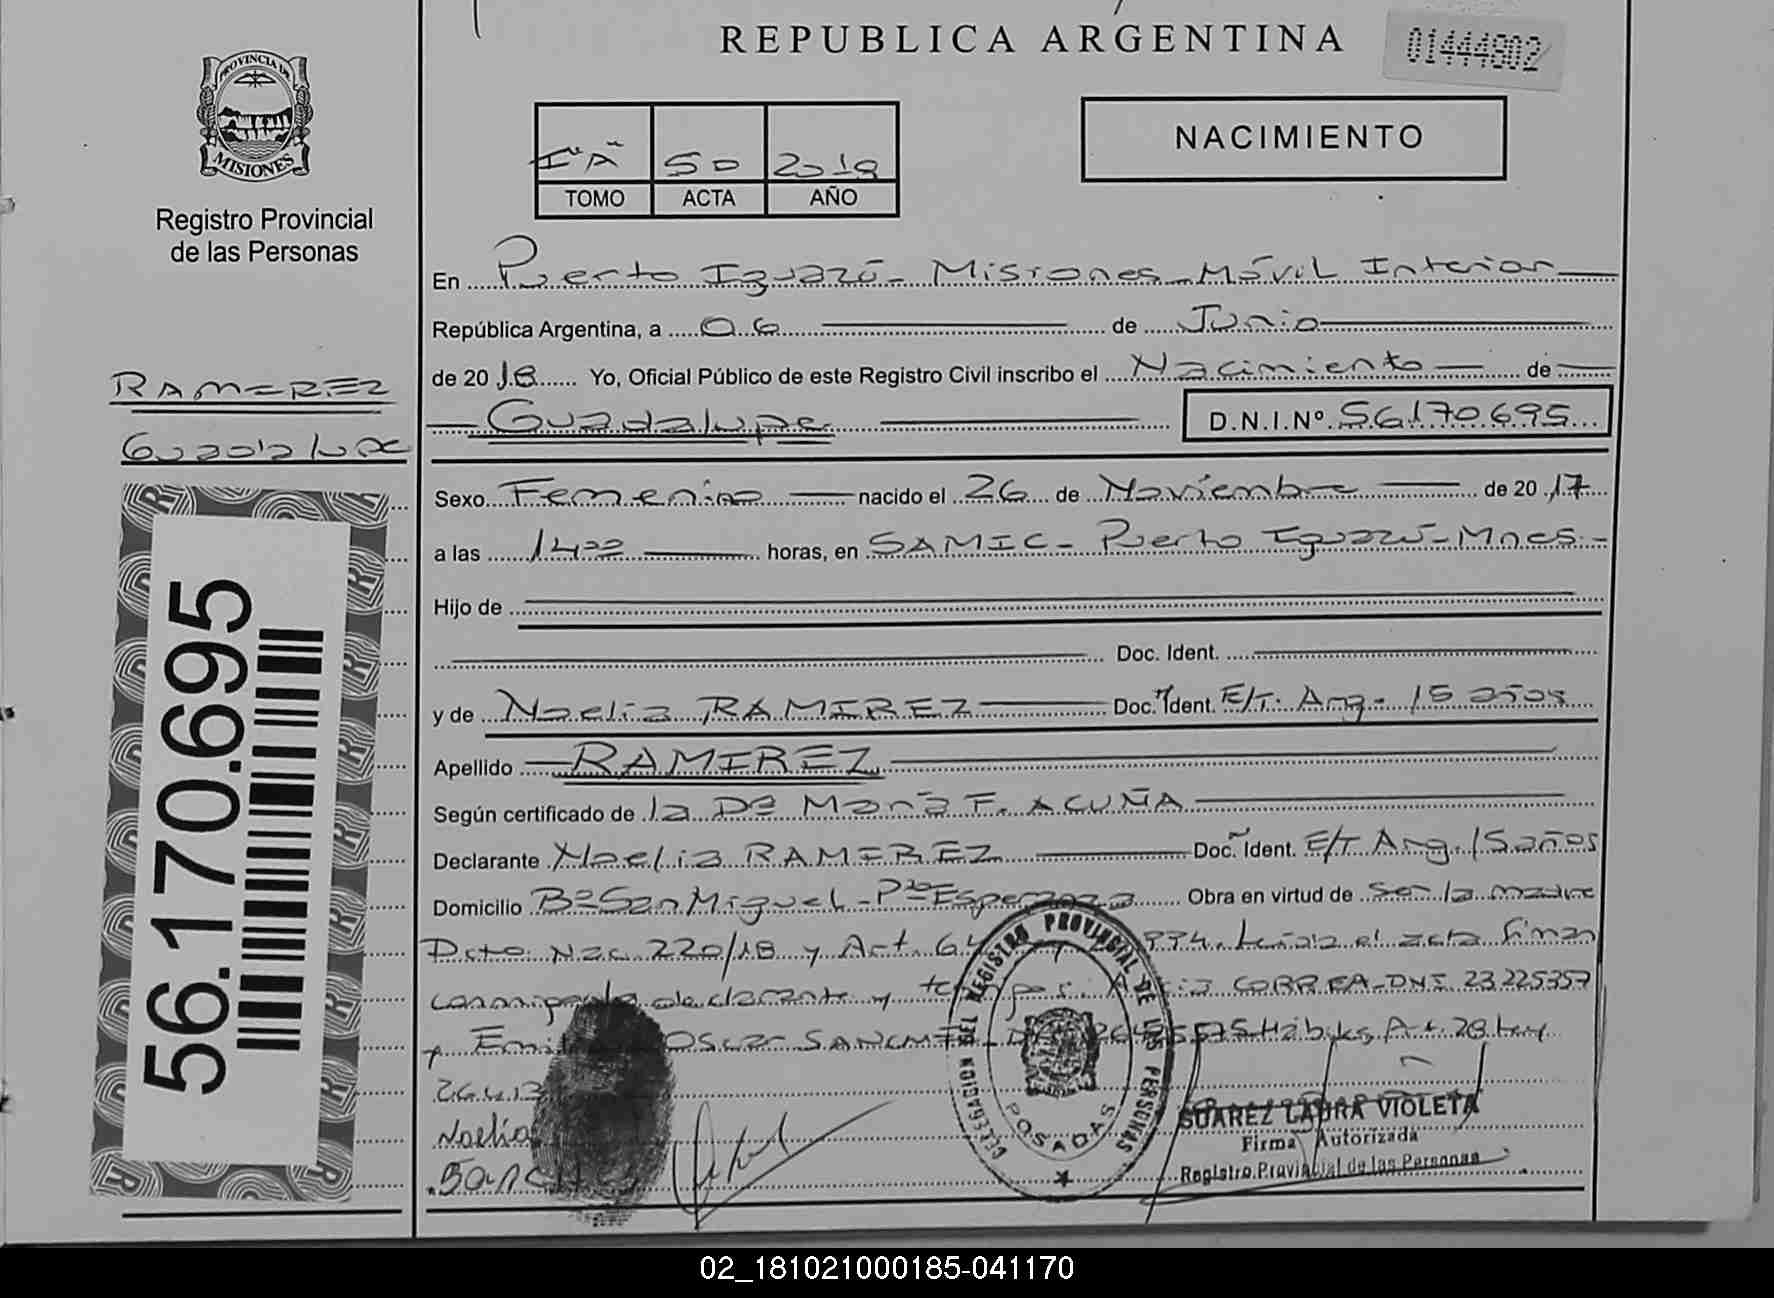 REPUBLICA ARGENTINA
01444902
PROVINCIA DE
MISIONES
Registro Provincial
de las Personas
I "A" 50 2018
TOMO ACTA AÑO
NACIMIENTO
En Puerto Iguazú - Misiones - Móvil Interior
República Argentina, a 06 de Junio
de 2018 Yo, Oficial Público de este Registro Civil inscribo el Nacimiento de
Guadalupe D.N.I.Nº 56.170.695
RAMIREZ
Guadalupe
56.170.695
Sexo Femenino nacido el 26 de Noviembre de 2017
a las 1400 horas, en SAMIC - Puerto Iguazú - Mnes -
Hijo de
Doc. Ident.
y de Noelia RAMIREZ Doc. Ident. E/T. Arg. 15 años
Apellido RAMIREZ
Según certificado de la Dª María F. ACUÑA
Declarante Noelia RAMIREZ Doc. Ident. E/T Arg. 15 años
Domicilio Bº San Miguel - Pto Esperanza Obra en virtud de ser la madre
Dcto. Nac. 220/18 y Art. 64 994. Leída el acta firman
conmigo la declarante y CORREA - DNI. 23.225357
y Oscar Art. 28 Ley
26.413
Noelia
DELEGACION DEL REGISTRO PROVINCIAL DE LAS PERSONAS
POSADAS
SUAREZ LAURA VIOLETA
Firma Autorizada
Registro Provincial de las Personas
02_181021000185-041170